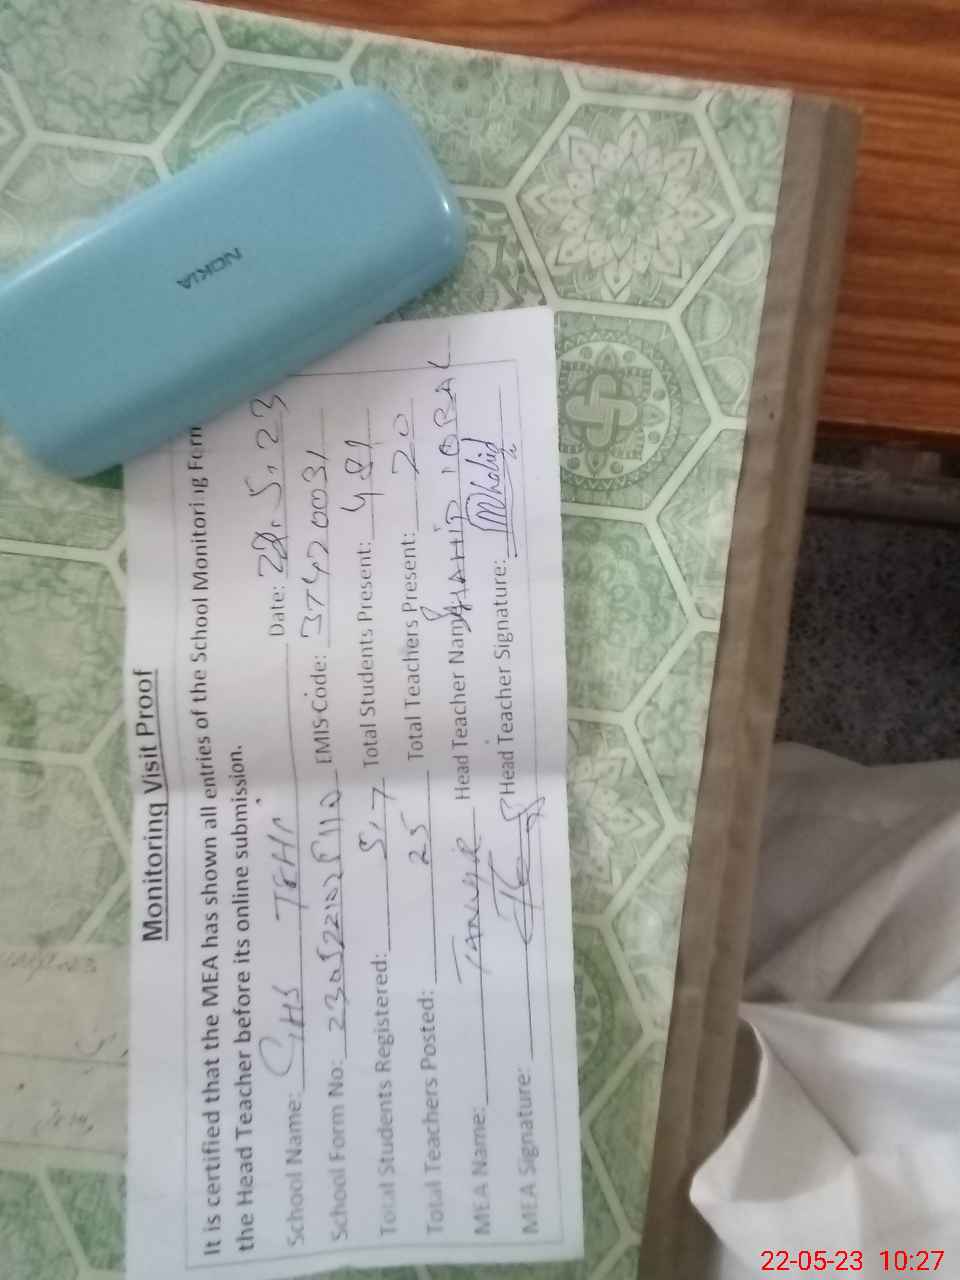 NOKIA
Monitoring Visit Proof
It is certified that the MEA has shown all entries of the School Monitoring Form
the Head Teacher before its online submission.
School Name: GHS Date: 22.5.23
School Form No: EMIS Code: 37420031
Total Students Registered: Total Students Present: 481
Total Teachers Posted: 25 Total Teachers Present: 20
MEA Name: Head Teacher Name: SHAHID IQBAL
MEA Signature: Head Teacher Signature:
22-05-23 10:27